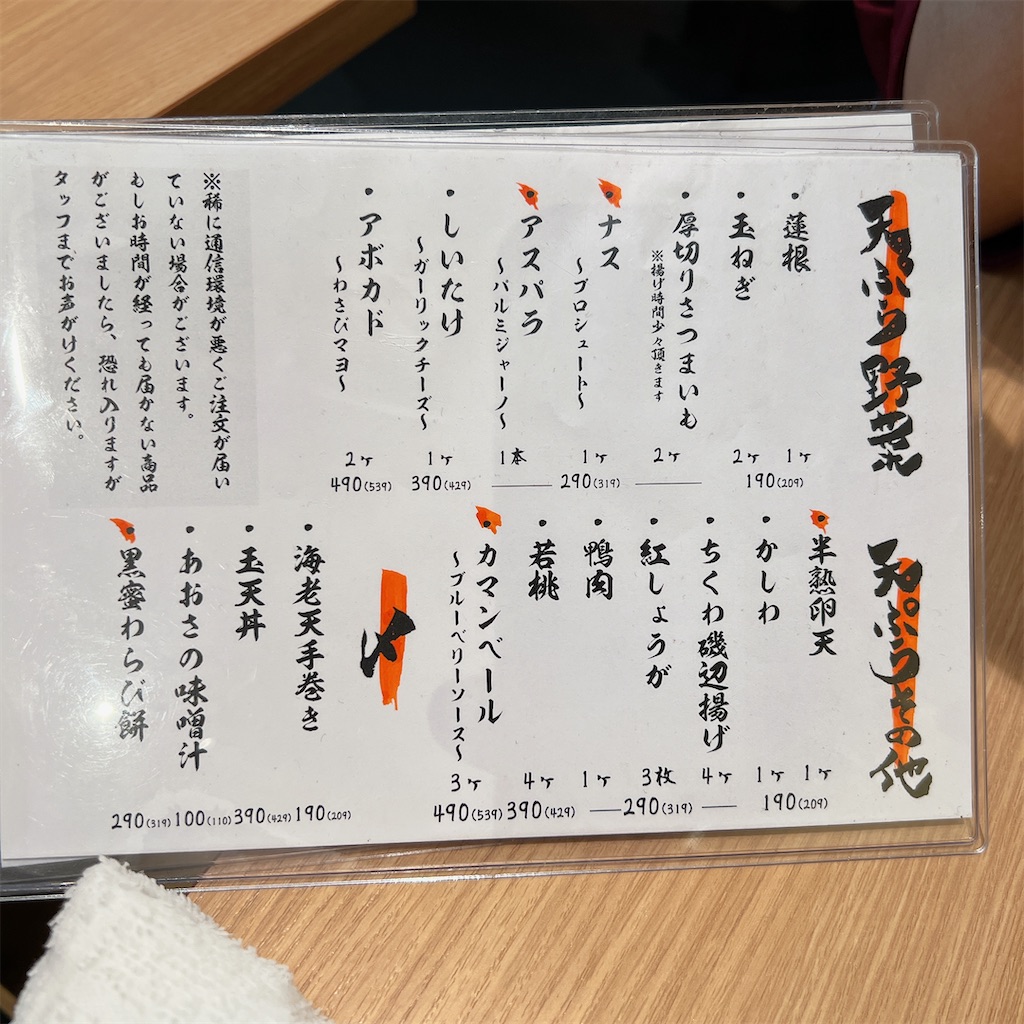 天ぷら野菜
・蓮根
1ヶ
・玉ねぎ
2ヶ
190(209)
・厚切りさつまいも
※揚げ時間少々頂きます
2ヶ
・ナス
〜プロシュート〜
1ヶ
・アスパラ
〜パルミジャーノ〜
1本
290(319)
・しいたけ
〜ガーリックチーズ〜
1ヶ
390(429)
・アボカド
〜わさびマヨ〜
2ヶ
490(539)
※稀に通信環境が悪くご注文が届い
ていない場合がございます。
もしお時間が経っても届かない商品
がございましたら、恐れ入りますが
タッフまでお声がけください。
天ぷらその他
・半熟卵天
1ヶ
・かしわ
1ヶ
190(209)
・ちくわ磯辺揚げ
4ヶ
・紅しょうが
3枚
・鴨肉
1ヶ
290(319)
・若桃
4ヶ
390(429)
・カマンベール
〜ブルーベリーソース〜
3ヶ
490(539)
〆
・海老天手巻き
190(209)
・玉天丼
390(429)
・あおさの味噌汁
100(110)
・黒蜜わらび餅
290(319)